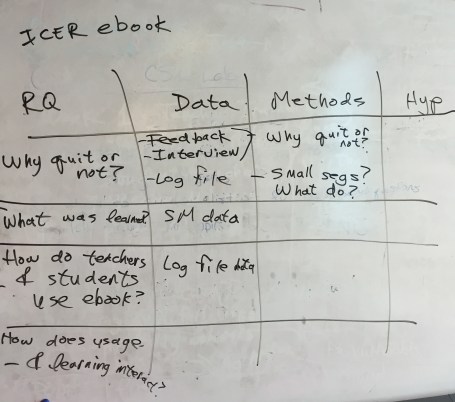 ICER ebook
RQ Data Methods Hyp
Why quit or not?
-Feedback
-Interview
-Log file
Why quit or not?
- Small segs?
What do?
What was learned? SM data
How do teachers
& students
use ebook?
Log file data
How does usage
- & learning interact?